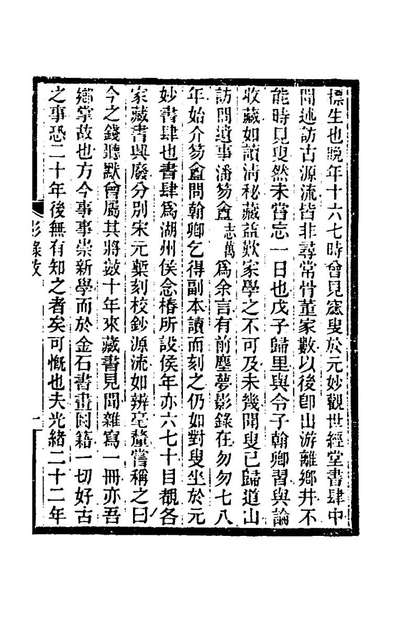 標生也晚年十六七時曾見窳叟於元妙觀世經堂書肆中
間述訪古源流皆非尋常骨董家數以後卽出游離鄉井不
能時見叟然未嘗忘一日也戊子歸里與令子翰卿習與論
收藏如讀淸秘藏益歎家學之不可及未幾聞叟已歸道山
訪問遺事潘笏盦志萬爲余言有前塵夢影錄在匆匆七八
年始介笏盦問翰卿乞得副本讀而刻之仍如對叟坐於元
妙書肆也書肆爲湖州侯念椿所設侯年亦六七十目覩各
家藏書興廢分別宋元槧刻校鈔源流如辨毫釐嘗稱之曰
今之錢聽默曾屬其將數十年來藏書見聞雜寫一冊亦吾
鄉掌故也方今事事崇新學而於金石書畫圖籍一切好古
之事恐二十年後無有知之者矣可慨也夫光緒二十二年
影錄敘
一